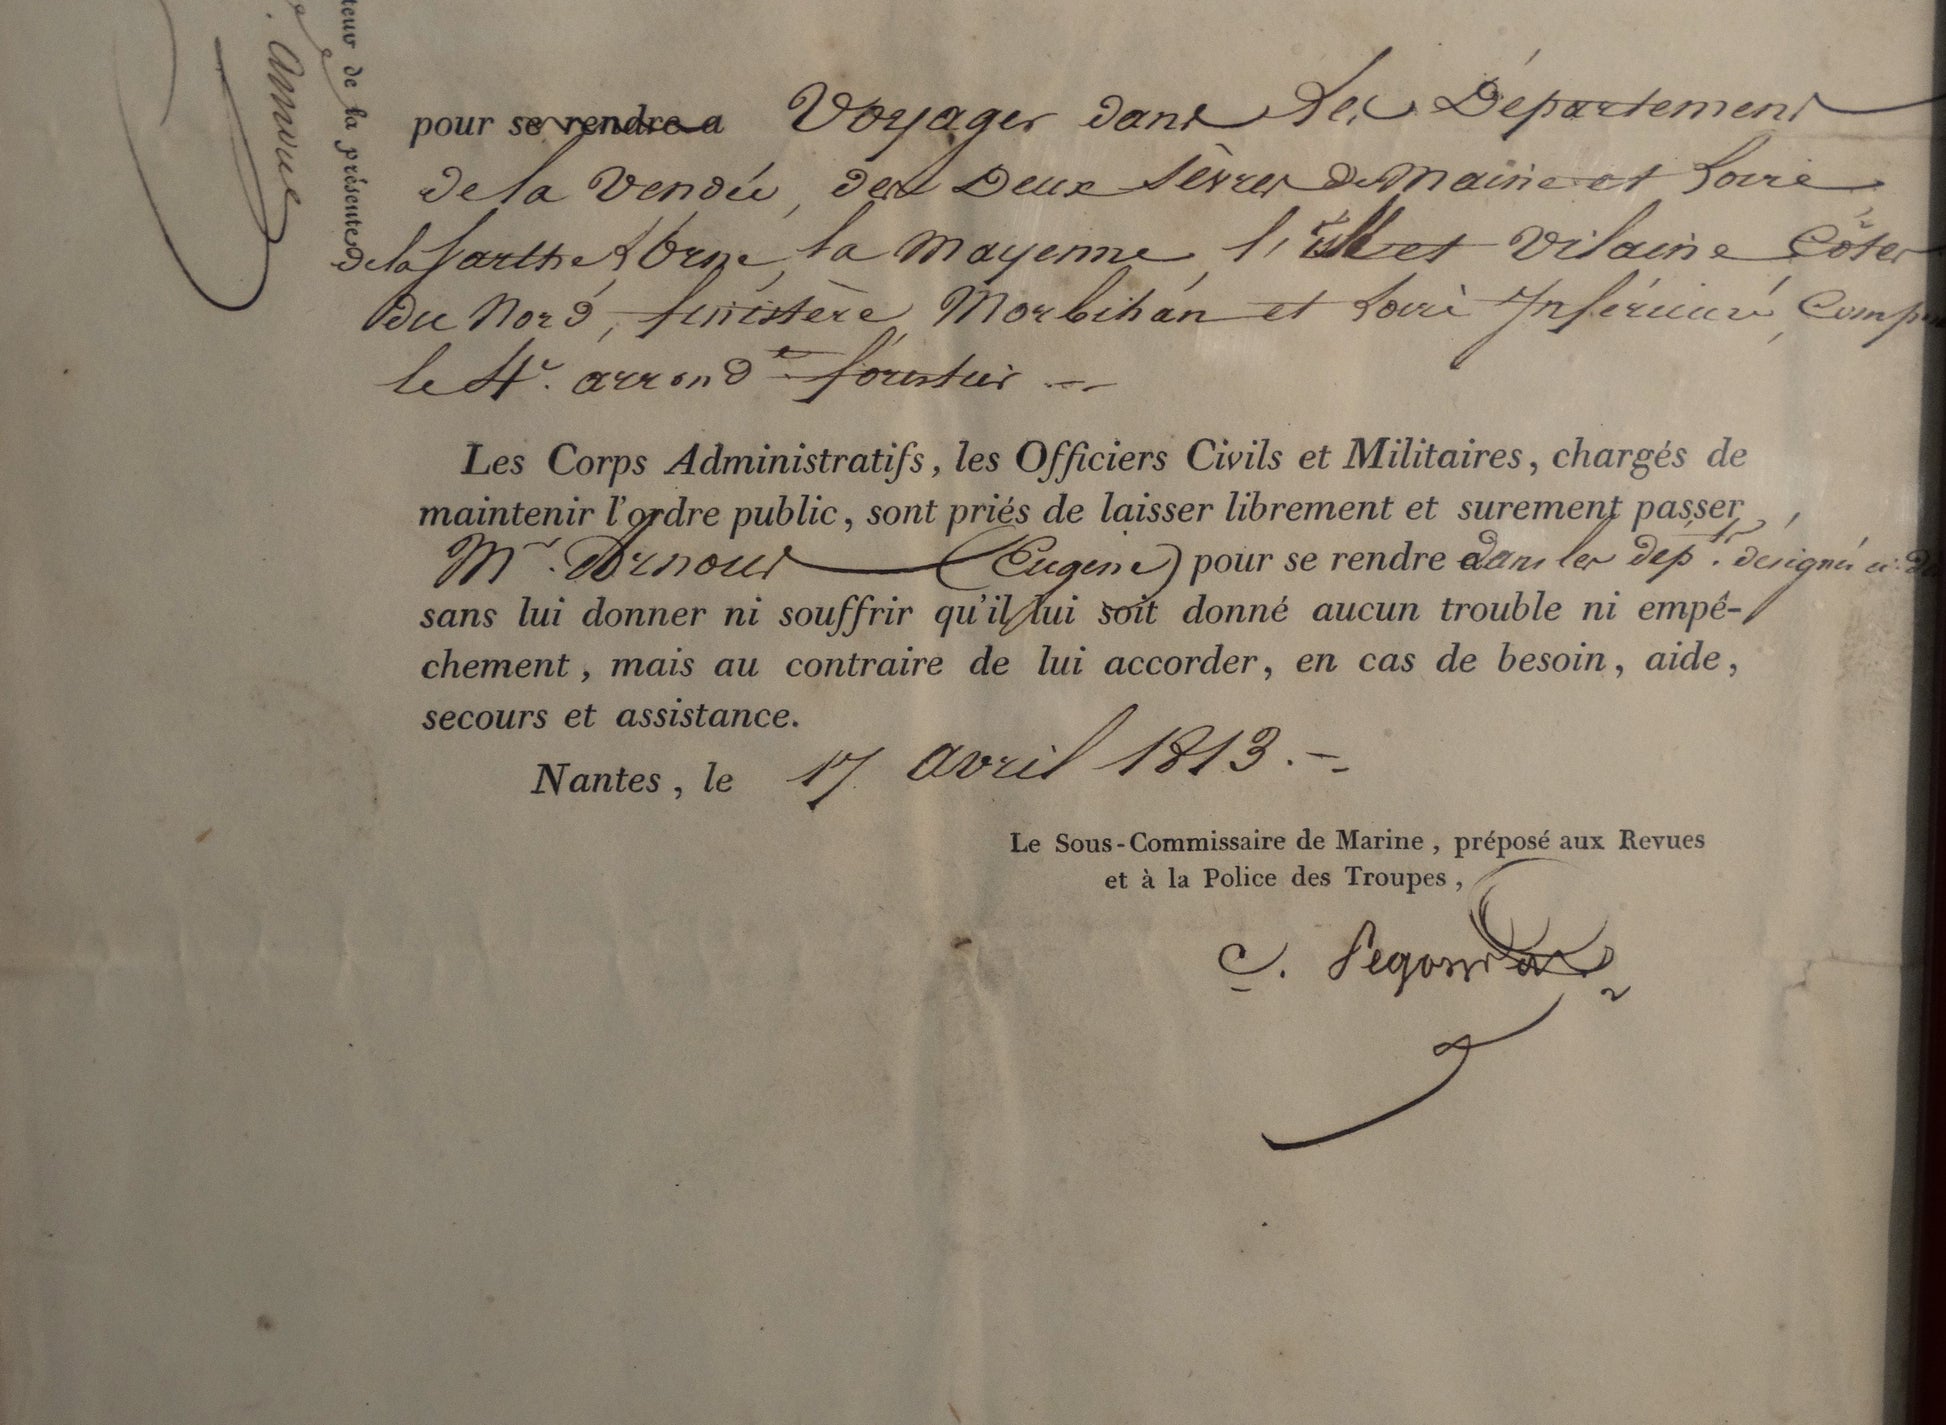 pour se rendre a Voyager dans Les Départements
de la Vendée, des Deux Sèvres de Maine et Loire
de la Sarthe, L'Orne, la Mayenne, l'Ille et Vilaine Côtes
du Nord, finistère, Morbihan et Loire Inférieure,
le 4e. arrondt forestier
Les Corps Administratifs, les Officiers Civils et Militaires, chargés de
maintenir l'ordre public, sont priés de laisser librement et surement passer
Mr. Arnous (Eugène) pour se rendre dans les dépts. désignés
sans lui donner ni souffrir qu'il lui soit donné aucun trouble ni empê-
chement, mais au contraire de lui accorder, en cas de besoin, aide,
secours et assistance.
Nantes, le 17 avril 1813.
Le Sous-Commissaire de Marine, préposé aux Revues
et à la Police des Troupes,
C.
de la présente